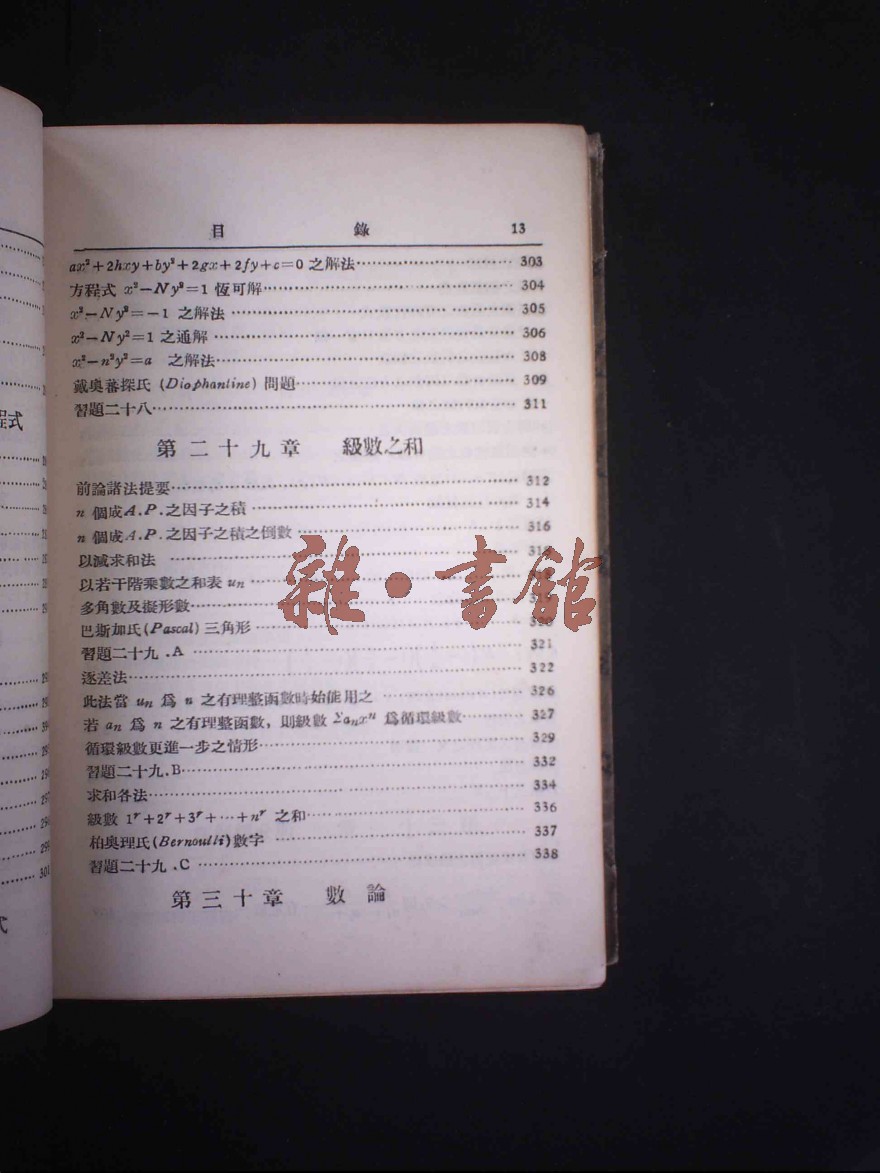 目 錄 13
ax²+2hxy+by²+2gx+2fy+c=0 之解法 303
方程式 x²-Ny²=1 恆可解 304
x²-Ny²=-1 之解法 305
x²-Ny²=1 之通解 306
x²-n²y²=a 之解法 308
戴奧蕃探氏 (Diophantine) 問題 309
習題二十八 311
第二十九章 級數之和
前論諸法提要 312
n 個成A.P.之因子之積 314
n 個成A.P.之因子之積之倒數 316
以減求和法
以若干階乘數之和表 uₙ
多角數及擬形數
巴斯加氏(Pascal)三角形 320
習題二十九.A 321
逐差法 322
此法當 uₙ 爲 n 之有理整函數時始能用之 326
若 aₙ 爲 n 之有理整函數，則級數 Σaₙxⁿ 爲循環級數 327
循環級數更進一步之情形 329
習題二十九.B 332
求和各法 334
級數 1ʳ+2ʳ+3ʳ+…+nʳ 之和 336
柏奧理氏(Bernoulli)數字 337
習題二十九.C 338
第三十章 數論
雜·書館
程式
301
式